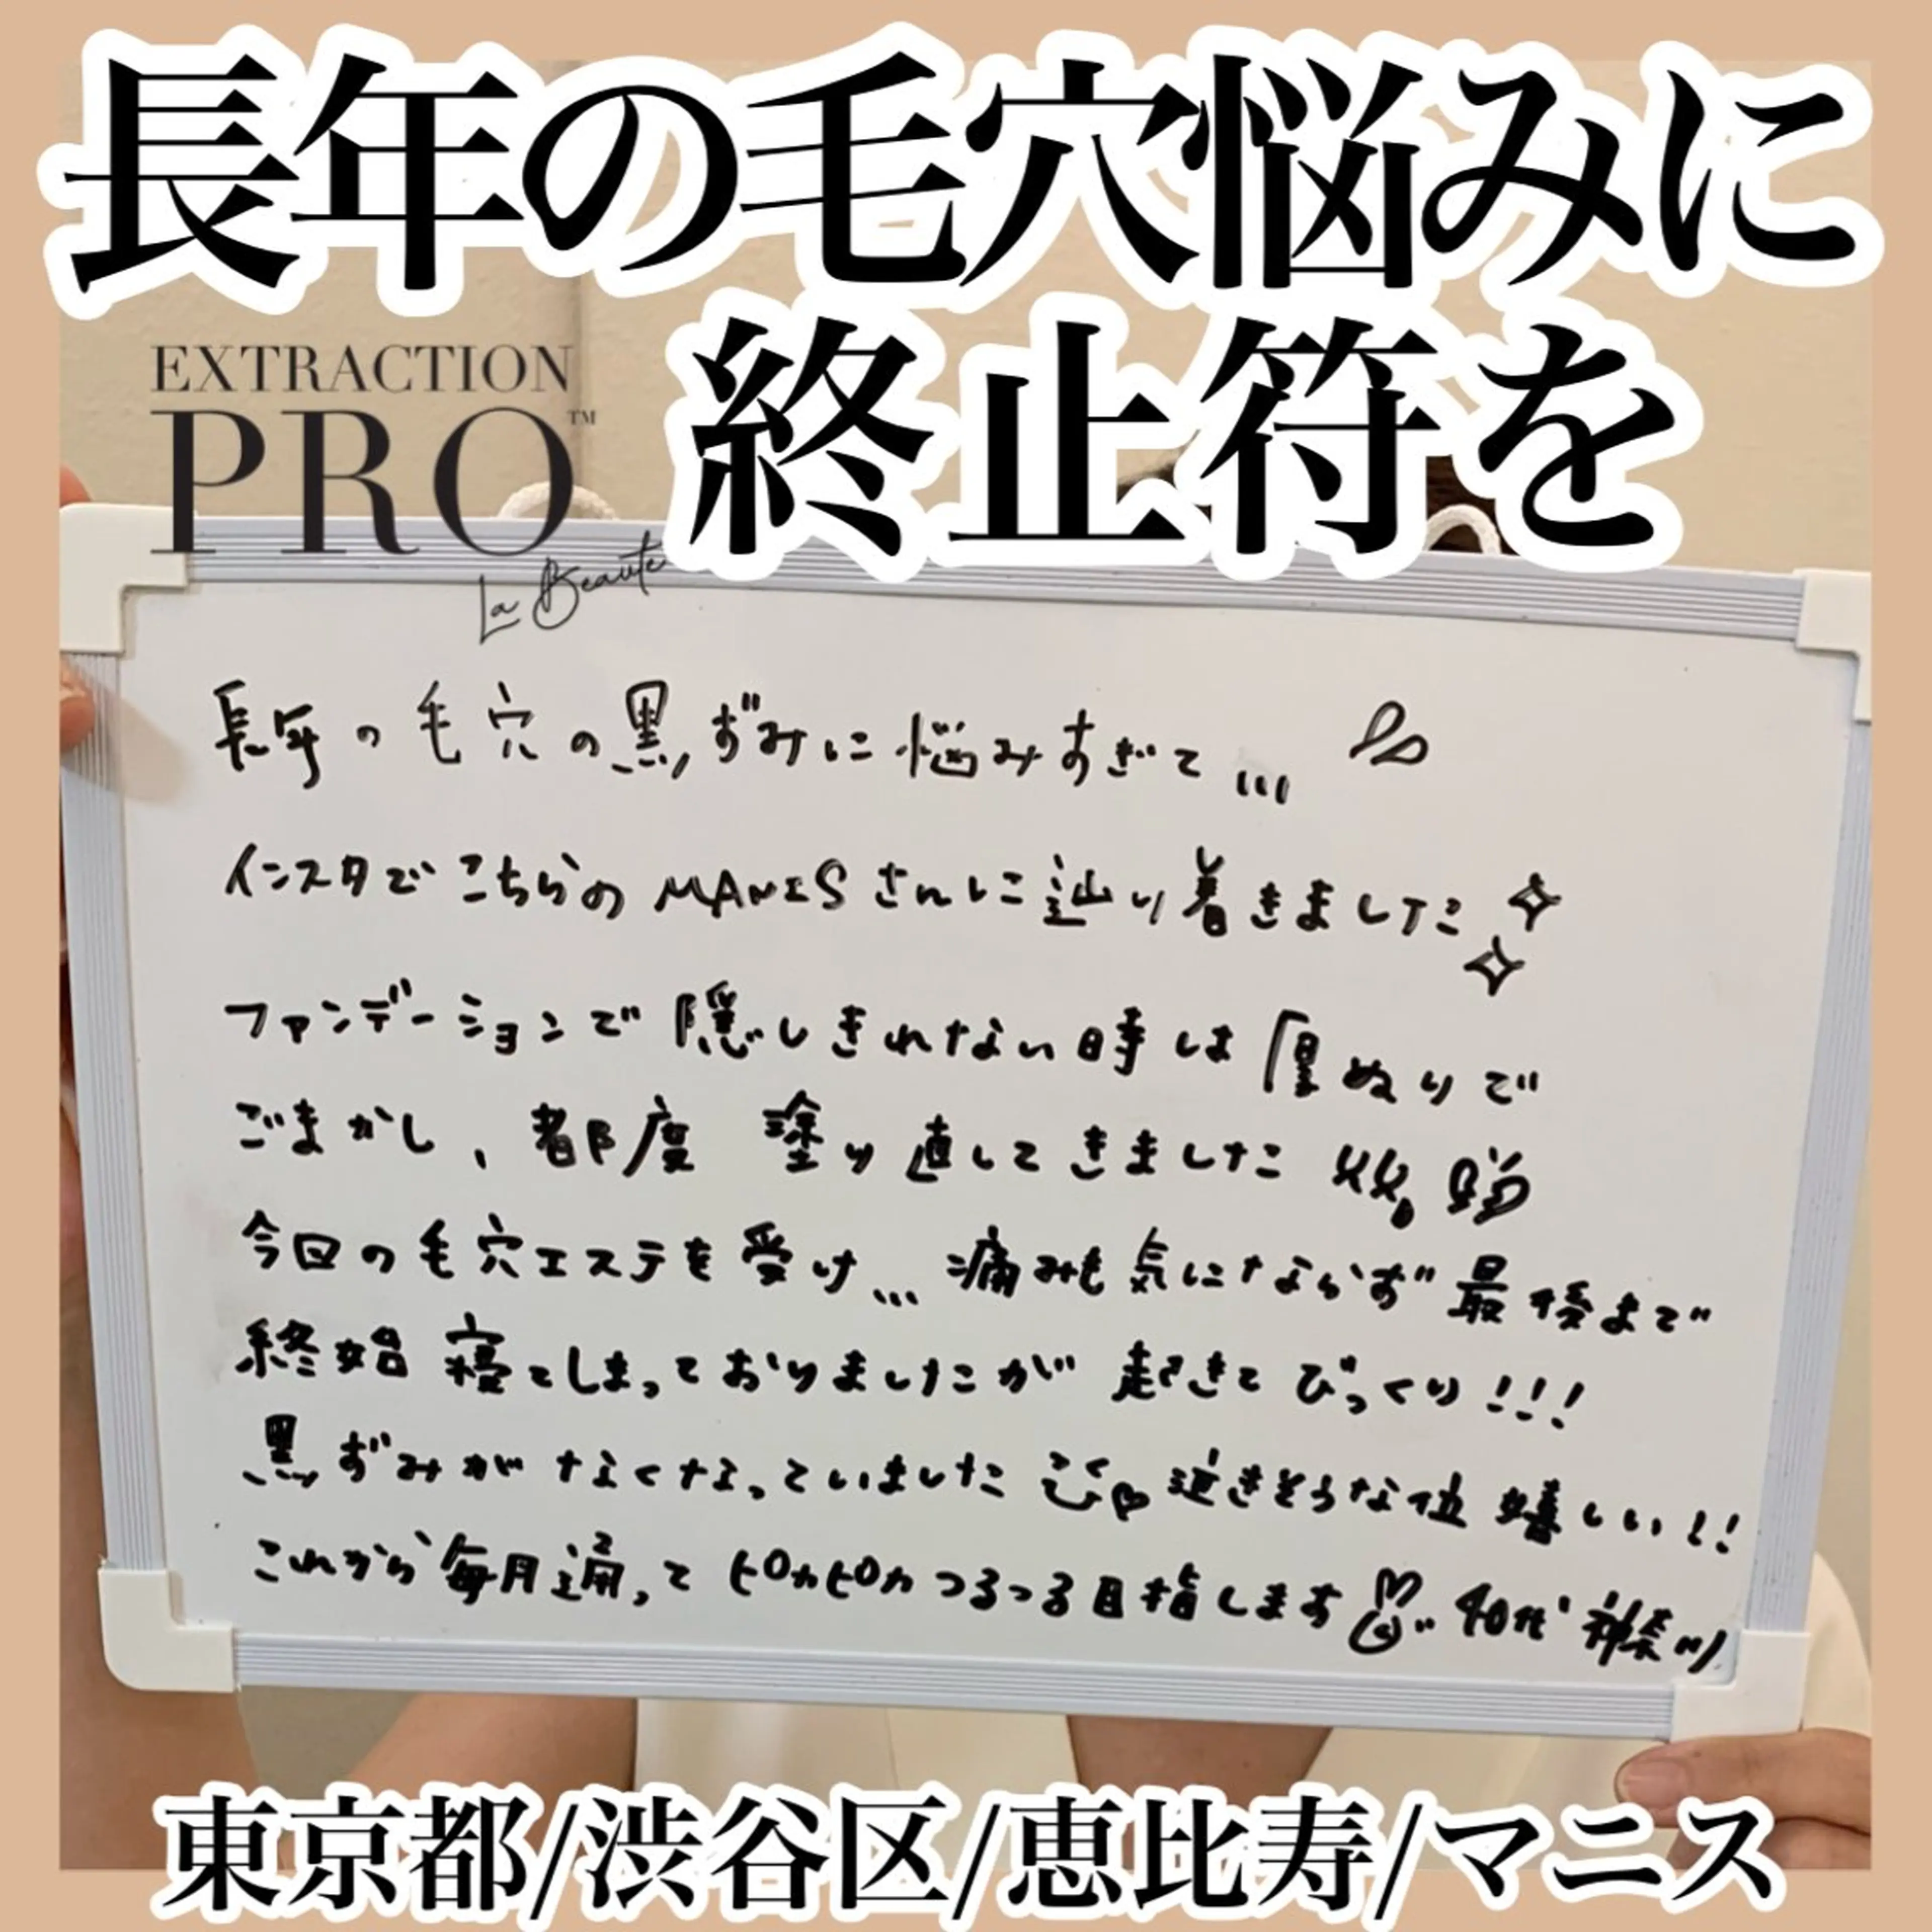 長年の毛穴悩みに
終止符を
EXTRACTION
PRO™
La Beauté
長年の毛穴の黒ずみに悩みすぎて...
インスタでこちらのMANISさんに辿り着きました
ファンデーションで隠しきれない時は厚ぬりで
ごまかし、都度 塗り直してきました
今回の毛穴エステを受け... 痛みも気にならず最後まで
終始 寝てしまっておりましたが 起きてびっくり!!!
黒ずみがなくなっていました 泣きそうな位 嬉しい!!
これから毎月通って ピカピカつるつる目指します 40代 神奈川
東京都/渋谷区/恵比寿/マニス